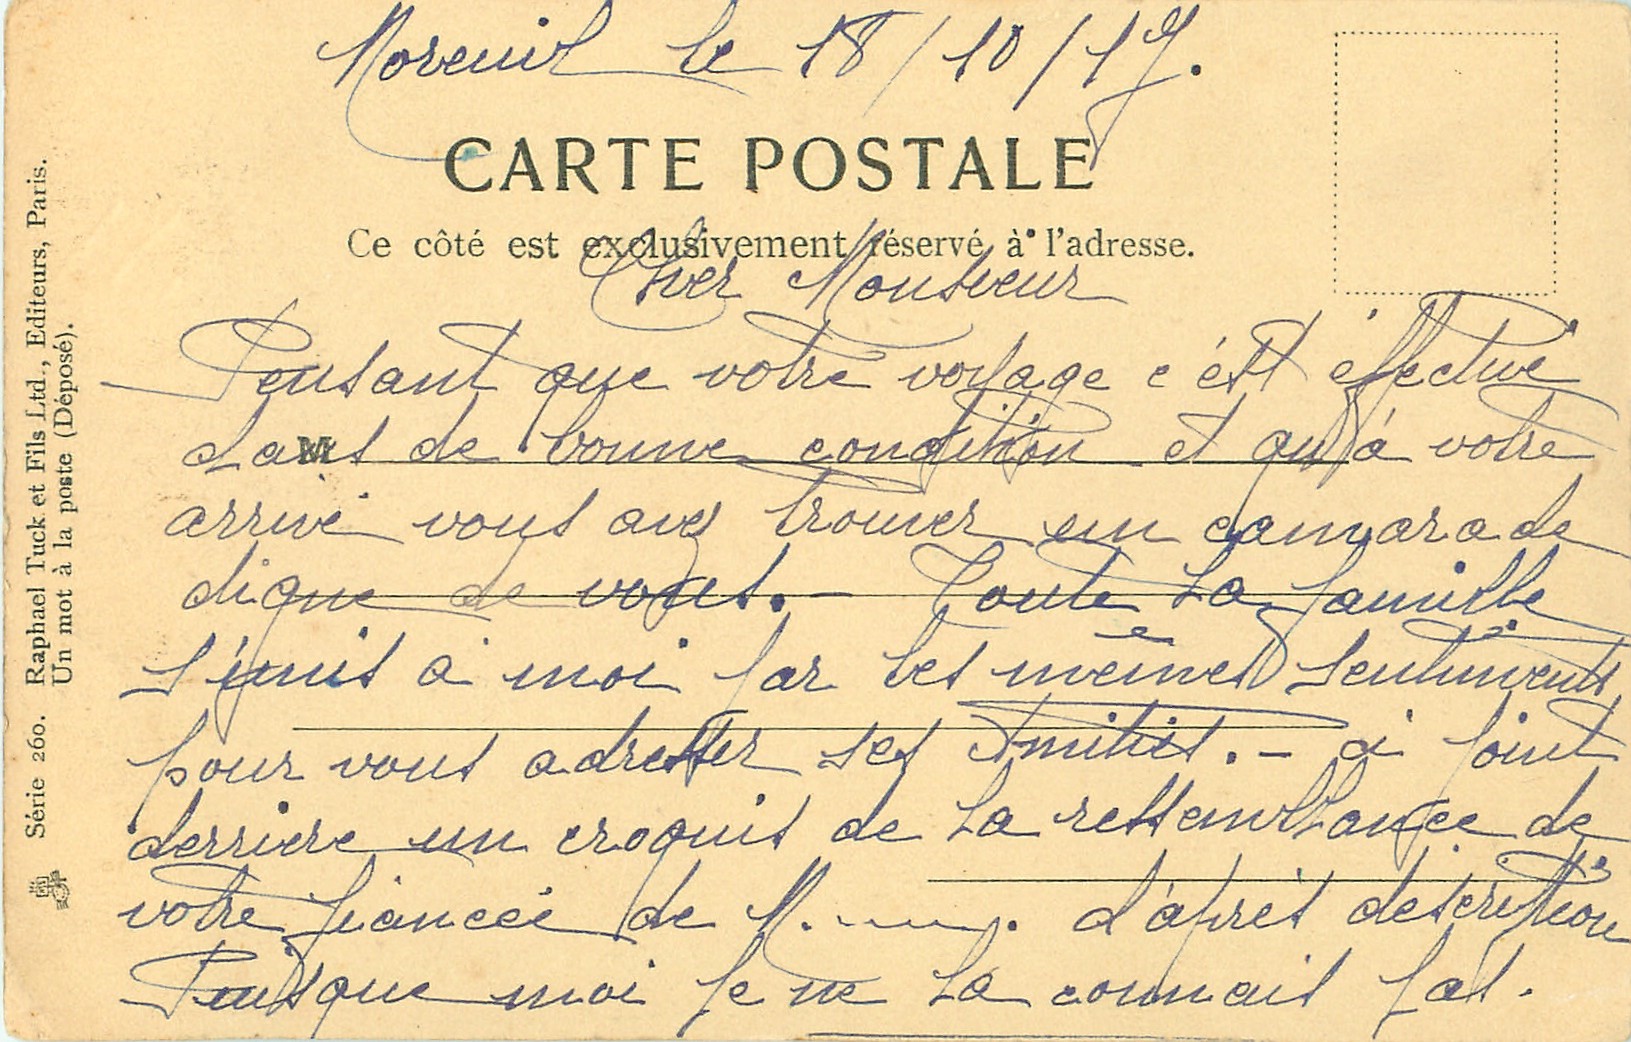 Moreuil le 18/10/19.
CARTE POSTALE
Ce côté est exclusivement réservé à l'adresse.
Cher Monsieur
Pensant que votre voyage c'ést éffectué
dans de bonne condition et qu'à votre
arrivé vous avez trouver un camarade
digne de vous. — Toute la famille
s'unis à moi par les mêmes sentiments
pour vous adresser ses amitiés. — ci joint
derriere un croquis de la ressemblance de
votre fiancée de M. ........ d'aprés description
Puisque moi je ne la connais pas.
Série 260. Raphael Tuck et Fils Ltd., Editeurs, Paris.
Un mot à la poste (Déposé).